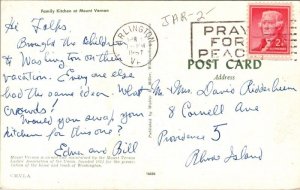 Family Kitchen at Mount Vernon
Hi Folks,
Brought the Children
to Washington on their
vacation. Every one else
had the same idea. What
crowds!
Would you away your
kitchen for this one?
Edna and Bill
Mount Vernon is owned and maintained by the Mount Vernon
Ladies' Association of the Union, founded 1853 for the preser-
vation of the home and tomb of Washington.
©MVLA
JAR-2
ARLINGTON
1957
PRAY
FOR
PEACE
2¢
POST CARD
Address
Mr. & Mrs. David Ridderheim
8 Cornell Ave
Providence 5
Rhode Island